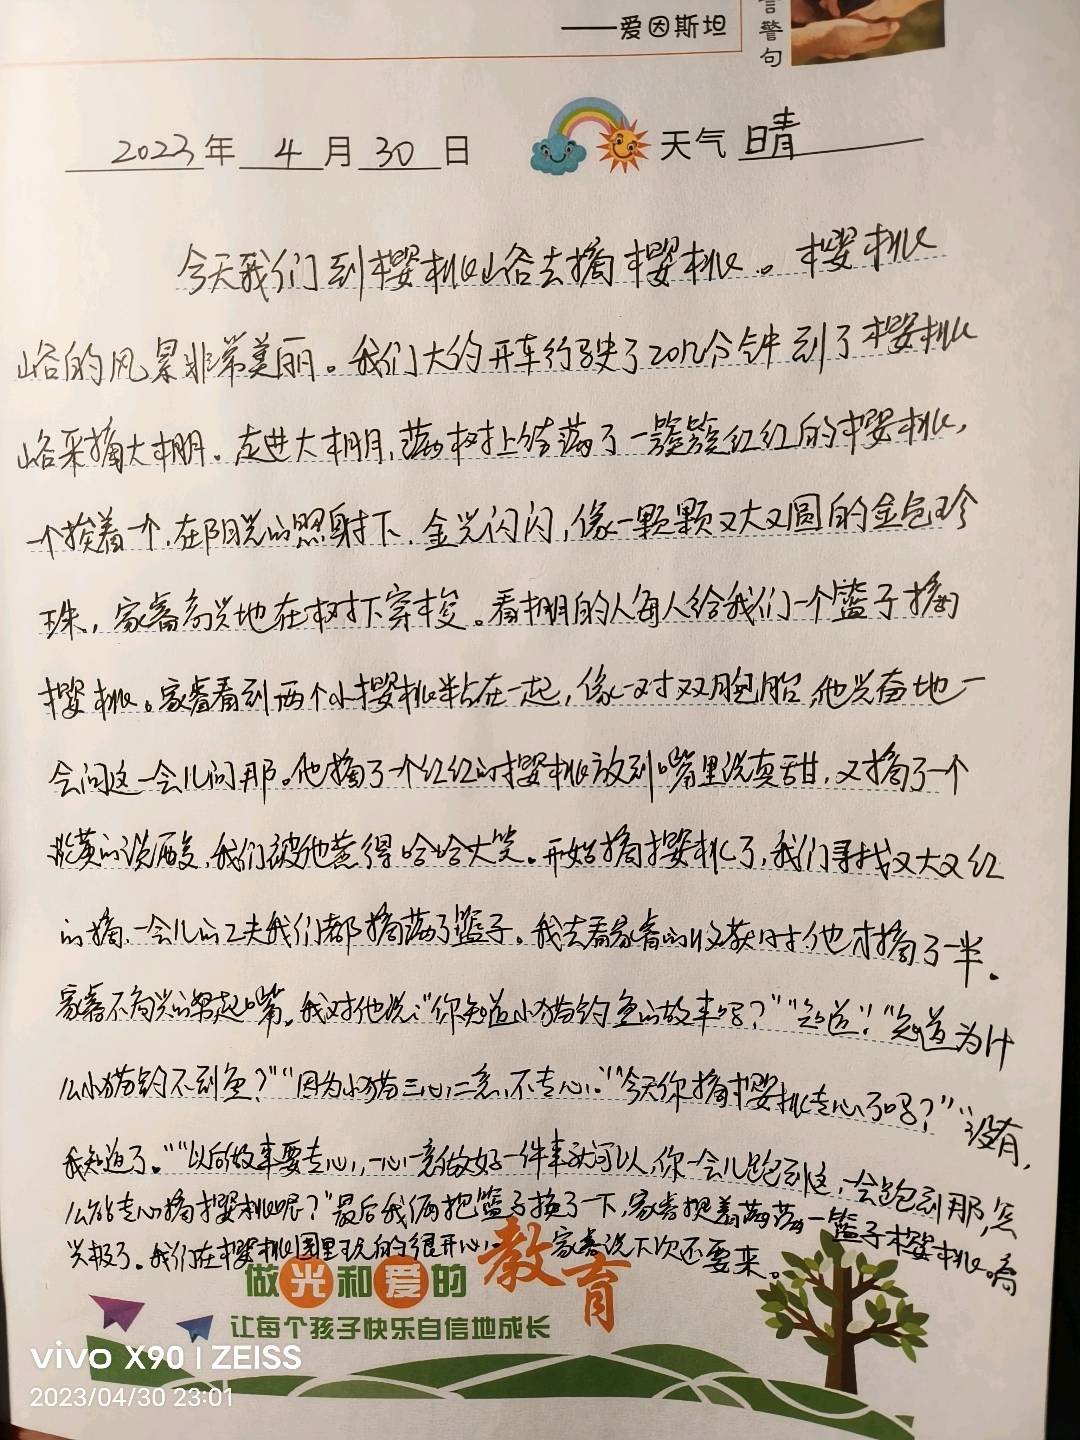 ——爱因斯坦
言警句
2023年 4 月 30 日 天气 晴
今天我们到樱桃山谷去摘樱桃。樱桃
山谷的风景非常美丽。我们大约开车行驶了20几分钟到了樱桃
山谷采摘大棚。走进大棚,满树上结满了一簇簇红红的樱桃,
个挨着个,在阳光的照射下,金光闪闪,像一颗颗又大又圆的金色珍
珠,家睿高兴地在树下穿梭。看棚的人每人给我们一个篮子摘
樱桃。家睿看到两个小樱桃粘在一起,像一对双胞胎,他兴奋地一
会问这一会儿问那。他摘了一个红红的樱桃放到嘴里说真甜,又摘了一个
黄的说酸,我们被他惹得哈哈大笑。开始摘樱桃了,我们寻找又大又红
的摘,一会儿的工夫我们都摘满了篮子。我去看家睿的收获时他才摘了一半。
家睿不高兴的努起嘴。我对他说:“你知道小猫钓鱼的故事吗?”“知道!”“知道为什
么小猫钓不到鱼?”“因为小猫三心二意,不专心。”“今天你摘樱桃专心了吗?”“没有,
我知道了。”“以后做事要专心,一心一意做好一件事就可以,你一会儿跑到这,一会跑到那,怎
么能专心摘樱桃呢?”最后我俩把篮子换了一下,家睿提着满满一篮子樱桃。高
兴极了。我们在樱桃园里玩的很开心。家睿说下次还要来。
做光和爱的教育
让每个孩子快乐自信地成长
vivo X90 | ZEISS
2023/04/30 23:01